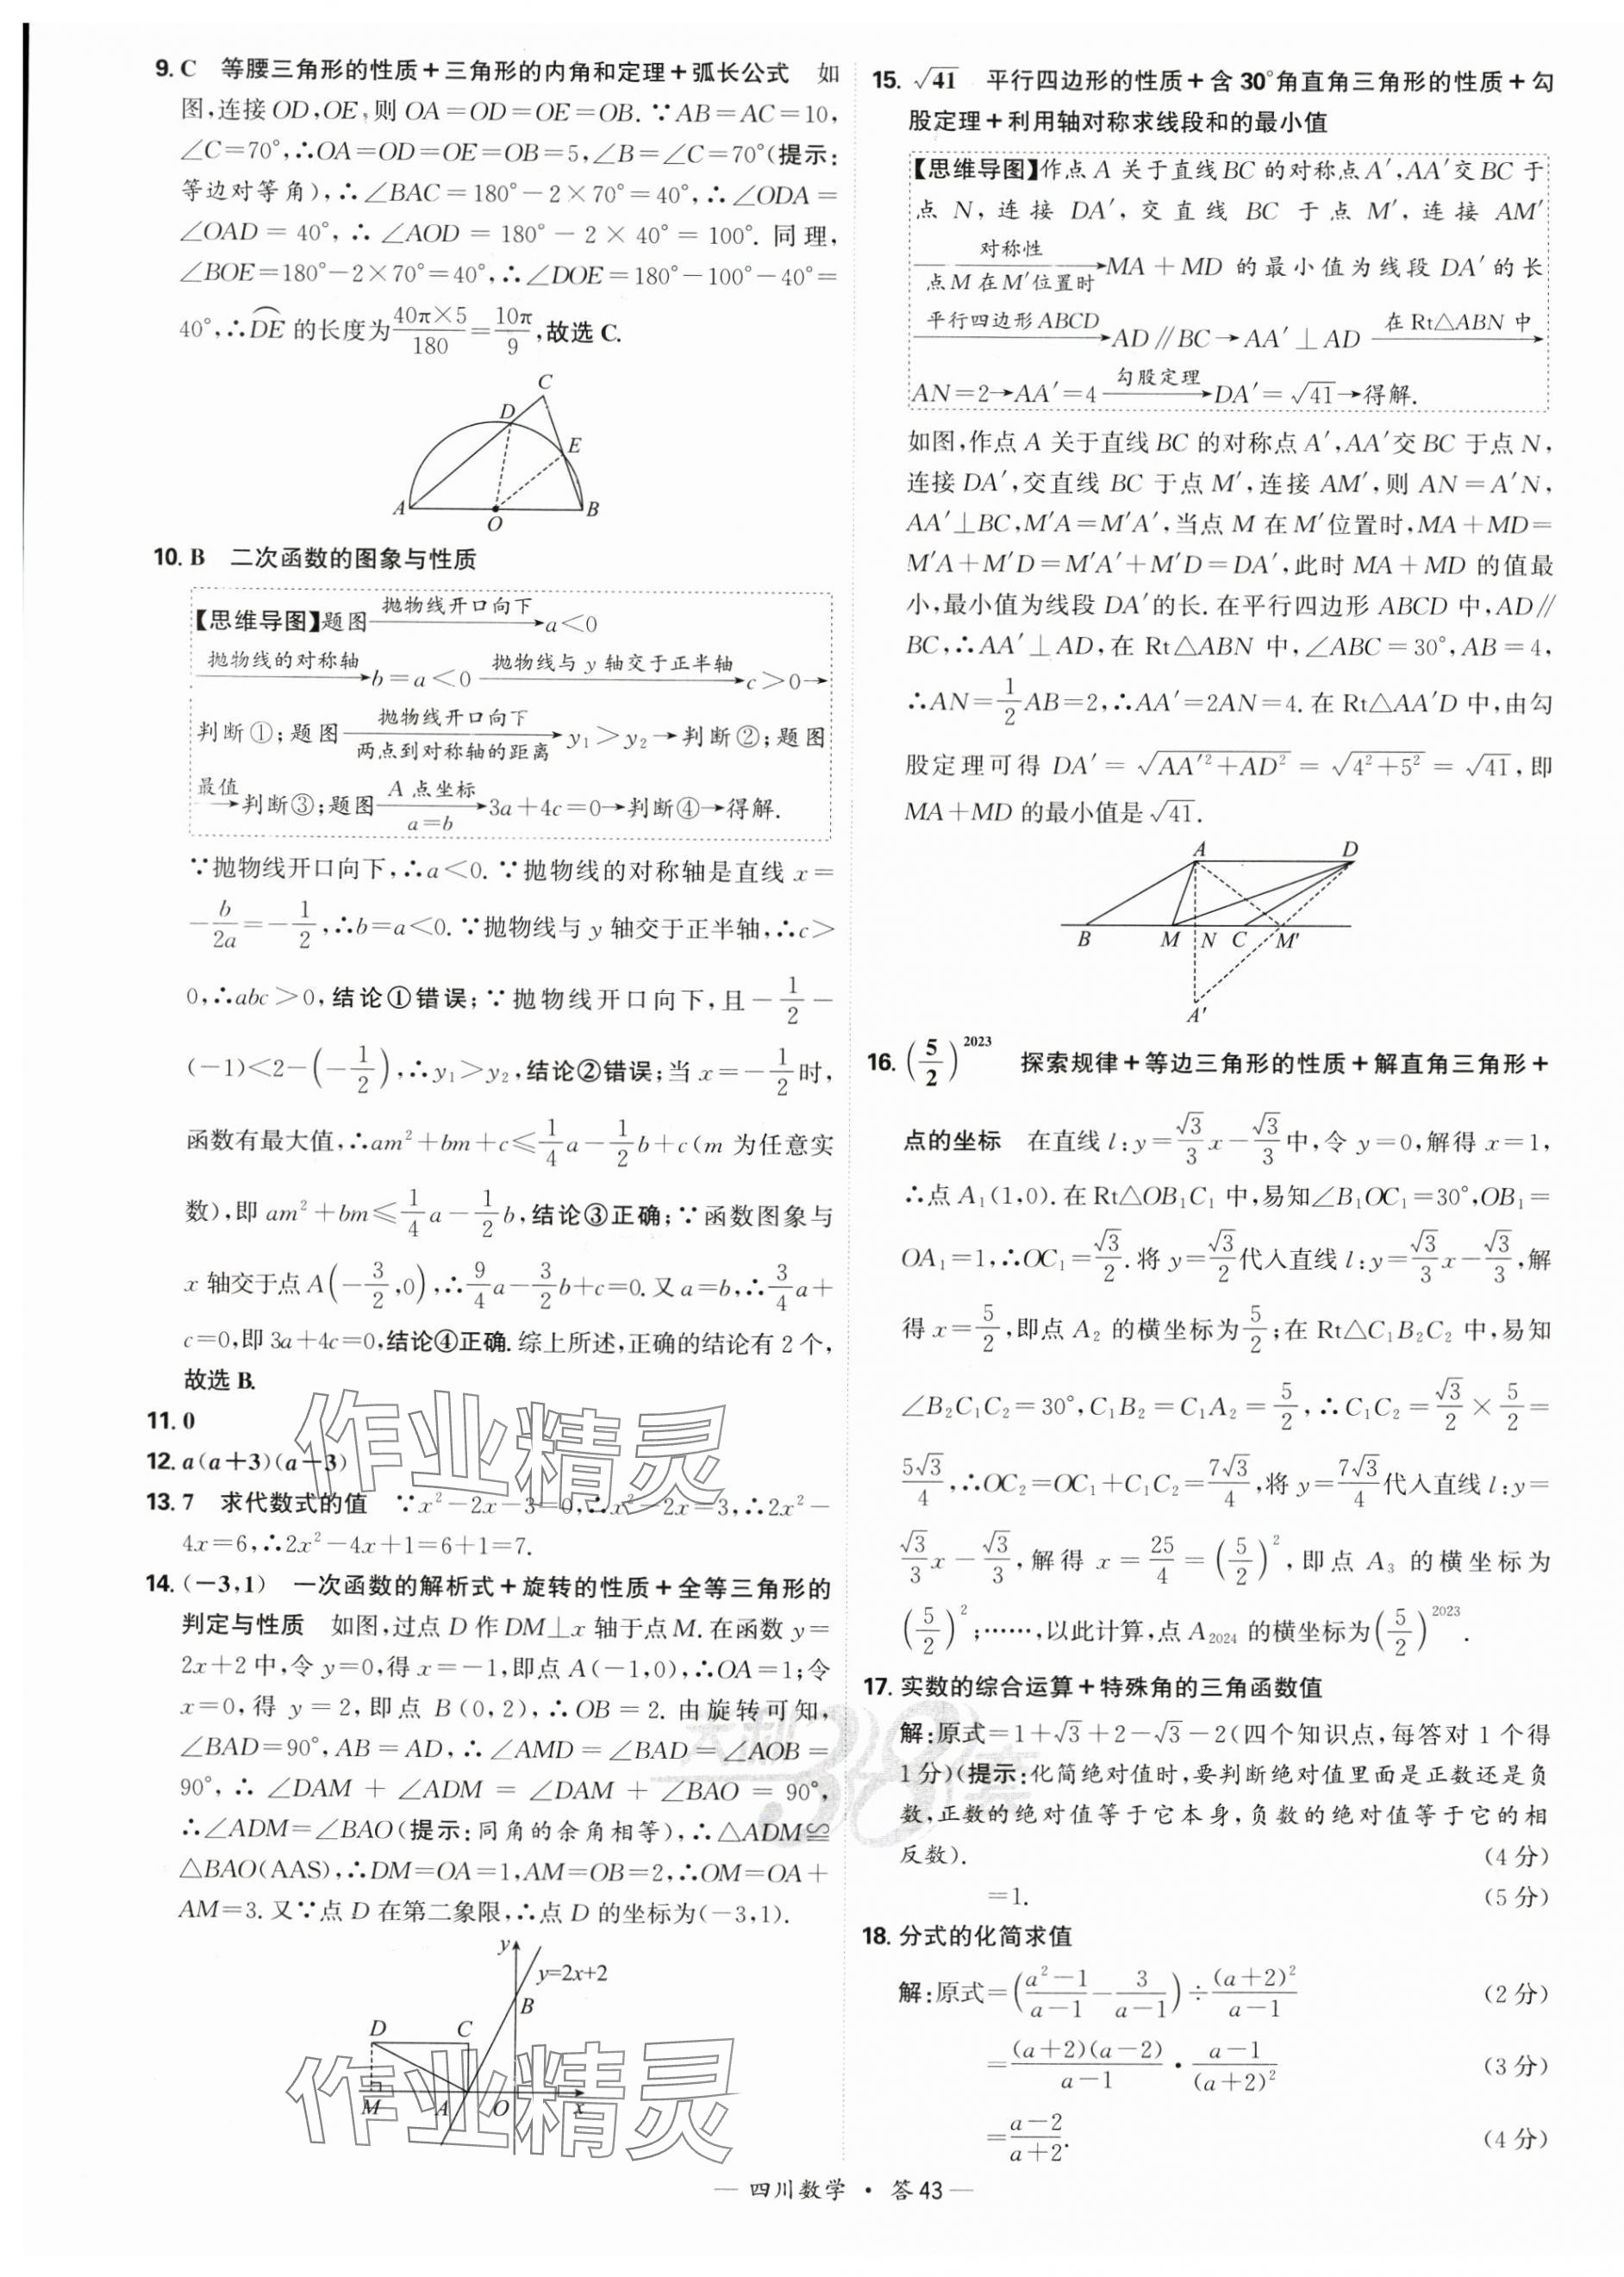 9. C 等腰三角形的性质+三角形的内角和定理+弧长公式 如
图,连接OD,OE,则OA=OD=OE=OB. ∵AB=AC=10,
∠C=70°,∴OA=OD=OE=OB=5,∠B=∠C=70°(提示:
等边对等角),∴∠BAC=180°-2×70°=40°,∴∠ODA=
∠OAD=40°,∴∠AOD=180°-2×40°=100°. 同理,
∠BOE=180°-2×70°=40°,∴∠DOE=180°-100°-40°=
40°,∴⌒DE 的长度为 40π×5/180=10π/9,故选C.
C
D
E
A
O
B
10. B 二次函数的图象与性质
【思维导图】题图 抛物线开口向下→a<0
抛物线的对称轴→b=a<0 抛物线与y轴交于正半轴→c>0→
判断①;题图 抛物线开口向下 两点到对称轴的距离→y₁>y₂→判断②;题图
最值→判断③;题图 A点坐标 a=b→3a+4c=0→判断④→得解.
∵抛物线开口向下,∴a<0. ∵抛物线的对称轴是直线x=
-b/2a=-1/2,∴b=a<0. ∵抛物线与y轴交于正半轴,∴c>
0,∴abc>0,结论①错误;∵抛物线开口向下,且-1/2-
(-1)<2-(-1/2),∴y₁>y₂,结论②错误;当x=-1/2时,
函数有最大值,∴am²+bm+c≤1/4a-1/2b+c(m为任意实
数),即am²+bm≤1/4a-1/2b,结论③正确;∵函数图象与
x轴交于点A(-3/2,0),∴9/4a-3/2b+c=0. 又a=b,∴3/4a+
c=0,即3a+4c=0,结论④正确. 综上所述,正确的结论有2个,
故选B.
11. 0
12. a(a+3)(a-3)
13. 7 求代数式的值 ∵x²-2x-3=0,∴x²-2x=3,∴2x²-
4x=6,∴2x²-4x+1=6+1=7.
14. (-3,1) 一次函数的解析式+旋转的性质+全等三角形的
判定与性质 如图,过点D作DM⊥x轴于点M. 在函数y=
2x+2中,令y=0,得x=-1,即点A(-1,0),∴OA=1;令
x=0,得y=2,即点B(0,2),∴OB=2. 由旋转可知,
∠BAD=90°,AB=AD,∴∠AMD=∠BAD=∠AOB=
90°,∴∠DAM+∠ADM=∠DAM+∠BAO=90°,
∴∠ADM=∠BAO(提示:同角的余角相等),∴△ADM≌
△BAO(AAS),∴DM=OA=1,AM=OB=2,∴OM=OA+
AM=3. 又∵点D在第二象限,∴点D的坐标为(-3,1).
y
y=2x+2
B
D
C
M
A
O
x
15. √41 平行四边形的性质+含30°角直角三角形的性质+勾
股定理+利用轴对称求线段和的最小值
【思维导图】作点A关于直线BC的对称点A′,AA′交BC于
点N,连接DA′,交直线BC于点M′,连接AM′
对称性 点M在M′位置时→MA+MD的最小值为线段DA′的长
平行四边形ABCD→AD∥BC→AA′⊥AD 在Rt△ABN中→
AN=2→AA′=4 勾股定理→DA′=√41→得解.
如图,作点A关于直线BC的对称点A′,AA′交BC于点N,
连接DA′,交直线BC于点M′,连接AM′,则AN=A′N,
AA′⊥BC,M′A=M′A′,当点M在M′位置时,MA+MD=
M′A+M′D=M′A′+M′D=DA′,此时MA+MD的值最
小,最小值为线段DA′的长. 在平行四边形ABCD中,AD∥
BC,∴AA′⊥AD,在Rt△ABN中,∠ABC=30°,AB=4,
∴AN=1/2AB=2,∴AA′=2AN=4. 在Rt△AA′D中,由勾
股定理可得DA′=√(AA′²+AD²)=√(4²+5²)=√41,即
MA+MD的最小值是√41.
A
D
B
M
N
C
M′
A′
16. (5/2)²⁰²³ 探索规律+等边三角形的性质+解直角三角形+
点的坐标 在直线l:y=√3/3x-√3/3中,令y=0,解得x=1,
∴点A₁(1,0). 在Rt△OB₁C₁中,易知∠B₁OC₁=30°,OB₁=
OA₁=1,∴OC₁=√3/2. 将y=√3/2代入直线l:y=√3/3x-√3/3,解
得x=5/2,即点A₂的横坐标为5/2;在Rt△C₁B₂C₂中,易知
∠B₂C₁C₂=30°,C₁B₂=C₁A₂=5/2,∴C₁C₂=√3/2×5/2=
5√3/4,∴OC₂=OC₁+C₁C₂=7√3/4,将y=7√3/4代入直线l:y=
√3/3x-√3/3,解得x=25/4=(5/2)²,即点A₃的横坐标为
(5/2)²;……,以此计算,点A₂₀₂₄的横坐标为(5/2)²⁰²³.
17. 实数的综合运算+特殊角的三角函数值
解:原式=1+√3+2-√3-2(四个知识点,每答对1个得
1分)(提示:化简绝对值时,要判断绝对值里面是正数还是负
数,正数的绝对值等于它本身,负数的绝对值等于它的相
反数). (4分)
=1. (5分)
18. 分式的化简求值
解:原式=((a²-1)/(a-1)-3/(a-1))÷(a+2)²/(a-1) (2分)
=(a+2)(a-2)/(a-1)·(a-1)/(a+2)² (3分)
=(a-2)/(a+2). (4分)
作业精灵
作业精灵
天利38套
— 四川数学 · 答43 —